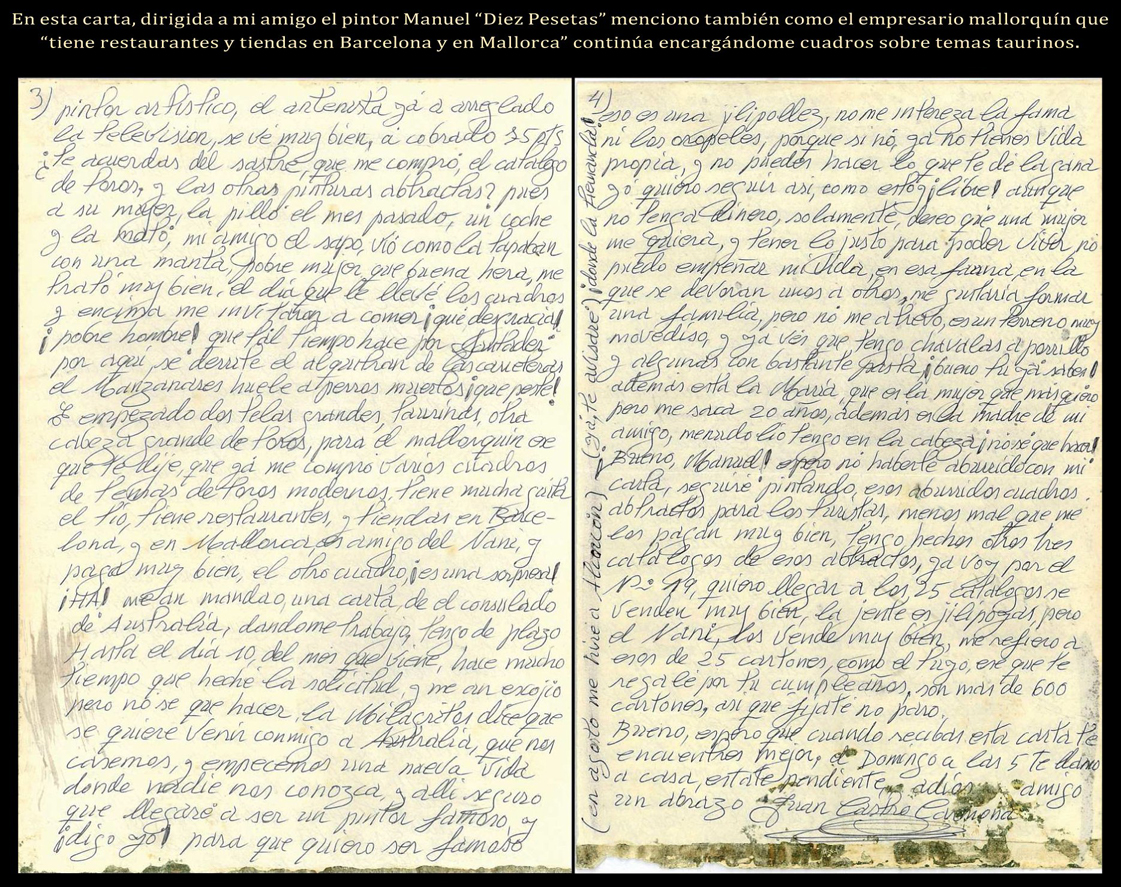 En esta carta, dirigida a mi amigo el pintor Manuel “Diez Pesetas” menciono también como el empresario mallorquín que
“tiene restaurantes y tiendas en Barcelona y en Mallorca” continúa encargándome cuadros sobre temas taurinos.
3)
pintor artístico, el antenista ya a arreglado
la televisión, se vé muy bien, a cobrado 35 pts
¿te acuerdas del sastre, que me compró, el catálogo
de toros, y las otras pinturas abtractas? pues
a su mujer, la pilló el mes pasado, un coche
y la mató, mi amigo el sapo, vió como la tapaban
con una manta, pobre mujer, que buena hera, me
trató muy bien, el día que le llevé los cuadros
y encima me invitaron a comer ¡qué desgracia!
¡pobre hombre! que tal tiempo hace por
por aquí, se derrite el alquitran de las carreteras
el Manzanares huele a perros muertos ¡que peste!
E empezado dos telas grandes, taurinas, otra
cabeza grande de toros, para el mallorquin ese
que te dije, que ya me compro varios cuadros
de temas de toros modernos, tiene mucha guita
el tío, tiene restaurantes, y tiendas en Barce-
lona, y en Mallorca, es amigo del Nani, y
paga muy bien, el otro cuadro, ¡es una sorpresa!
¡HA! me an mandao, una carta, de el consulado
de Australia, dandome trabajo, tengo de plazo
Hasta el día 10, del mes que viene, hace mucho
tiempo que heché la solicitud y me an escojio
pero no se que hacer, la Milagritos dice que
se quiere venir conmigo a Australia, que nos
casemos, y empecemos una nueva vida
donde nadie nos conozca, y allí seguro
que llegaré a ser un pintor famoso, y
¡digo yo! para que quiero ser famoso
4)
eso es una jilipollez, no me intereza la fama
ni los oropeles, porque si nó, ya no tienes vida
propia, y no puedes hacer lo que te dé la gana
yo quiero seguir así, como estoy ¡libre! aunque
no tenga dinero, solamente, deseo que una mujer
me quiera, y tener lo justo para poder vivir, no
puedo empeñar mi vida, en esa fauna, en la
que se devoran unos a otros, me gustaría formar
una familia, pero no me atrevo, es un terreno muy
movediso, y ya ves que tengo chavalas a porrillo
y algunas con bastante pasta ¡bueno tu ya sabes!
además está la María, que es la mujer que mas quiero
pero me saca 20 años, además es la madre de mi
amigo, menudo lio tengo en la cabeza ¡no sé que hacer!
Bueno, Manuel! espero no haberte aburrido con mi
carta, seguiré pintando, esos aburridos cuadros
abtractos para los turistas, menos mal que me
los pagan muy bien, tengo hechos otros tres
catálogos de esos abtractos, ya voy por el
Nº 19, quiero llegar a los 25 catálogos se
venden muy bien, la jente es jilipoyas, pero
el Nani, los vende muy bien, me refiero a
esos de 25 cartones, como el tuyo, ese que te
regalé por tu cumpleaños, son más de 600
cartones, asi que fijate no paro,
Bueno, espero que cuando recibas esta carta te
encuentres mejor, el Domingo a las 5 te llamo
a casa, estate pendiente, adios amigo
un abrazo Juan Castro Carmona
(en agosto me hire a Alcorcón) (ya te avisaré) ¡donde la Fernanda!